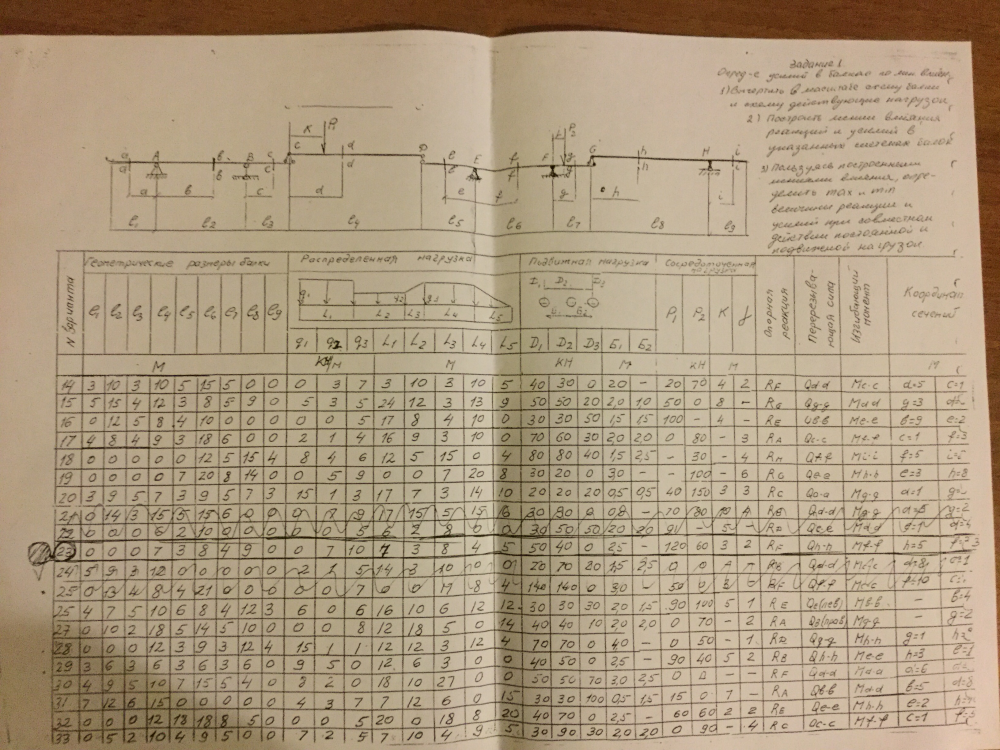 Задание 1.
усилий в балках
1) Вычертить в масштабе схему балки
и схему действующих нагрузок
2) Построить линии влияния
реакций и усилий в
указанных сечениях балок
3) Пользуясь построенными
линиями влияния, опре-
делить max и min
величины реакции и
усилий при совместном
действии постоянной и
подвижной нагрузок
K P₁ P₂
a A b B c c d D e E f F g G h H i
a b c d e f g h i
ℓ₁ ℓ₂ ℓ₃ ℓ₄ ℓ₅ ℓ₆ ℓ₇ ℓ₈ ℓ₉
N Варианта Геометрические размеры балки Распределенная нагрузка Подвижная нагрузка Сосредоточенная нагрузка Опорная реакция Перерезывающая сила Изгибающий момент Координат сечений
ℓ₁ ℓ₂ ℓ₃ ℓ₄ ℓ₅ ℓ₆ ℓ₇ ℓ₈ ℓ₉ q₁ q₂ q₃ L₁ L₂ L₃ L₄ L₅ D₁ D₂ D₃ Б₁ Б₂ P₁ P₂ K
М М КН М КН М М
14 3 10 3 10 5 15 5 0 0 0 3 7 3 10 3 10 5 40 30 0 2,0 - 20 70 4 2 RF Qd-d Mc-c d=5 c=1
15 5 15 4 12 3 8 5 9 0 5 3 5 24 12 3 13 9 50 50 20 2,0 1,0 50 0 8 - RG Qg-g Md-d g=3
16 0 12 5 8 4 10 0 0 0 0 0 5 17 8 4 10 0 30 30 50 1,5 1,5 100 - 4 - RE Qв-в Me-e в=9 e=2
17 4 8 4 9 3 18 6 0 0 2 1 4 16 9 3 10 0 70 60 30 2,0 2,0 0 80 - 3 RA Qc-c Mf-f c=1 f=3
18 0 0 0 0 0 12 5 15 4 8 4 6 12 5 15 0 4 80 80 40 1,5 2,5 - 30 - 4 RH Qf-f Mi-i f=5 i=5
19 0 0 0 0 7 20 8 14 0 0 5 9 0 0 7 20 8 30 20 0 30 - - 100 - 6 RG Qe-e Mh-h e=3 h=8
20 3 9 5 7 3 9 5 7 3 15 1 3 17 7 3 14 10 20 20 20 0,5 0,5 40 150 3 3 RC Qa-a Mg-g a=1
21 0 14 3 15 5 15 6 0 0 Qd-d Mg-g g=2
22 0 0 0 6 2 10 0 0 0 0 0 5 6 2 8 0 0 30 50 50 20 20 Qe-e Md-d d=4
23 0 0 0 7 3 8 4 9 0 0 7 10 7 3 8 4 5 50 40 0 2,5 - 120 60 3 2 RF Qh-h Mf-f h=5
24 5 9 3 12 0 0 0 0 0 0 2 1 5 14 3 10 0 0 20 70 20 1,5 2,5 0 0 Qd-d Mc-c d=8
25 0 13 4 8 4 21 0 0 0 0 0 7 0 0 8 4 140 140 0 3,0 50 Qf-f Mc-c f=10
25 4 7 5 10 6 8 4 12 3 6 0 6 16 10 6 12 12 30 30 30 2,0 1,5 90 100 5 1 RE Qe(лев) Mв-в - в=4
27 0 10 2 18 5 14 5 10 0 0 0 8 12 18 5 0 14 40 40 10 2,0 2,0 0 70 - 2 RA Mg-g - g=2
28 0 0 0 12 3 9 3 12 4 15 1 1 12 12 3 12 4 70 70 0 40 - 0 50 - 1 Qg-g Mh-h g=1 h=2
29 3 6 3 6 3 6 3 6 0 9 5 0 12 6 3 0 0 40 50 0 2,5 - 90 40 5 2 RB Qh-h Me-e h=3 e=1
30 4 9 5 10 7 15 5 4 0 8 2 0 18 10 27 0 0 50 50 70 3,0 2,5 0 0 - - RF Qd-d Ma-a d=6
31 7 12 6 15 0 0 0 0 0 4 3 7 7 12 6 0 15 30 30 100 0,5 1,5 15 0 7 - RA Qв-в Md-d в=5 d=8
32 0 0 0 12 18 18 8 5 0 0 0 5 20 0 18 8 20 40 70 0 2,5 - 60 60 2 2 RE Qe-e Mh-h e=2
33 0 5 2 10 4 9 5 0 0 7 2 5 7 10 4 9 5 30 90 30 2,0 2,0 0 90 - 4 RC Qc-c Mf-f c=1